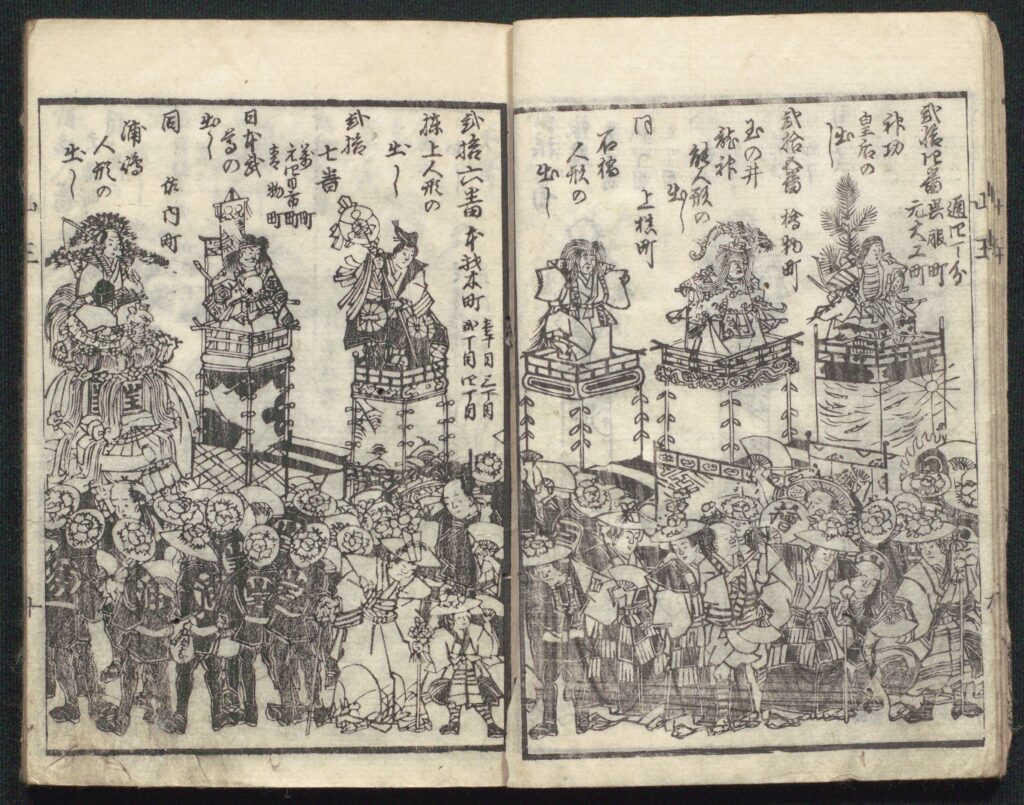 弐拾四番
通四丁分
呉服町
元大工町
神功
皇后の
出し
弐拾五番 檜物町
玉の井
龍神
能人形の
出し
同 上槙町
石橋
人形の
出し
弐拾六番 本材木町
壱丁目三丁目
弐丁目四丁目
棟上人形の
出し
弐拾
七番
萬町
元四日市町
青物町
日本武
尊の
出し
同 佐内町
浦嶋
人形の
出し